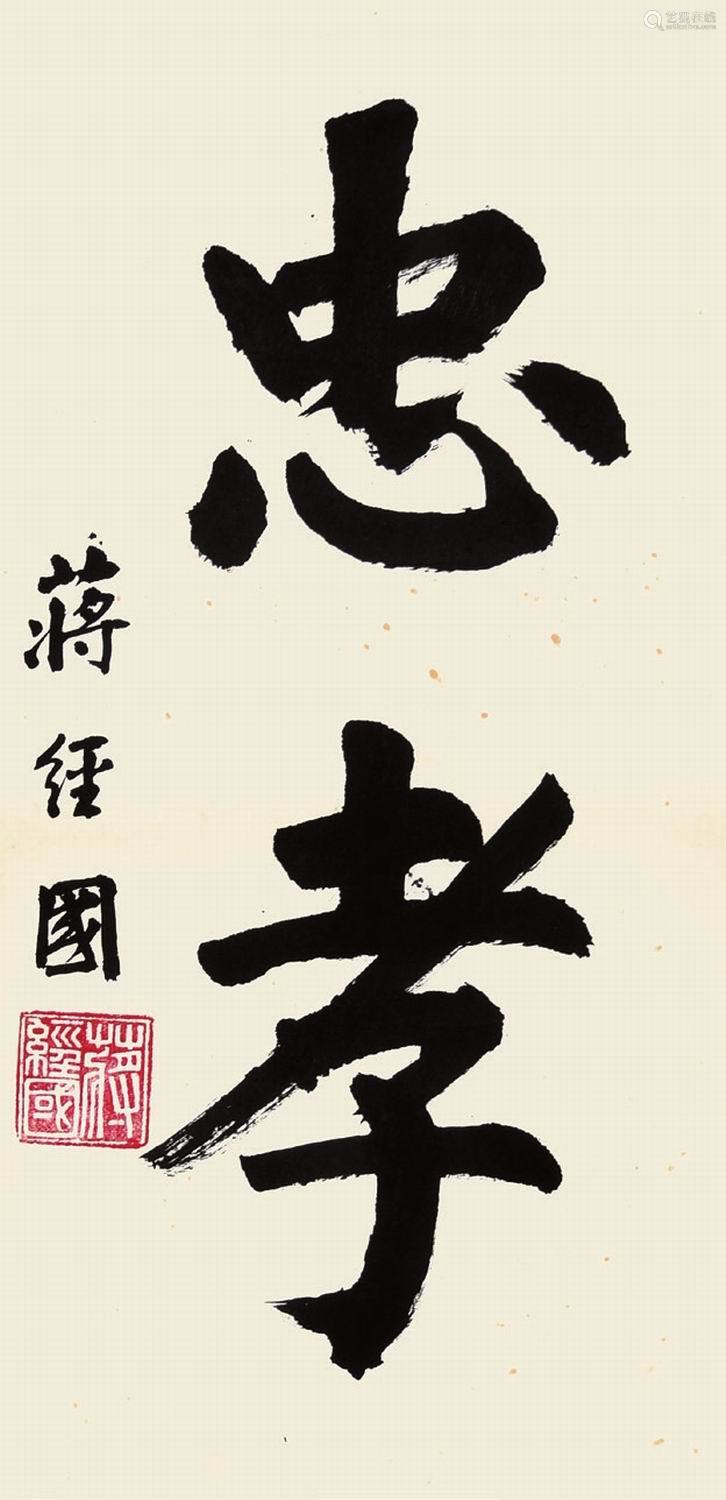 忠孝
蔣經國
蔣經國
艺狐在线
artfoxlive.com